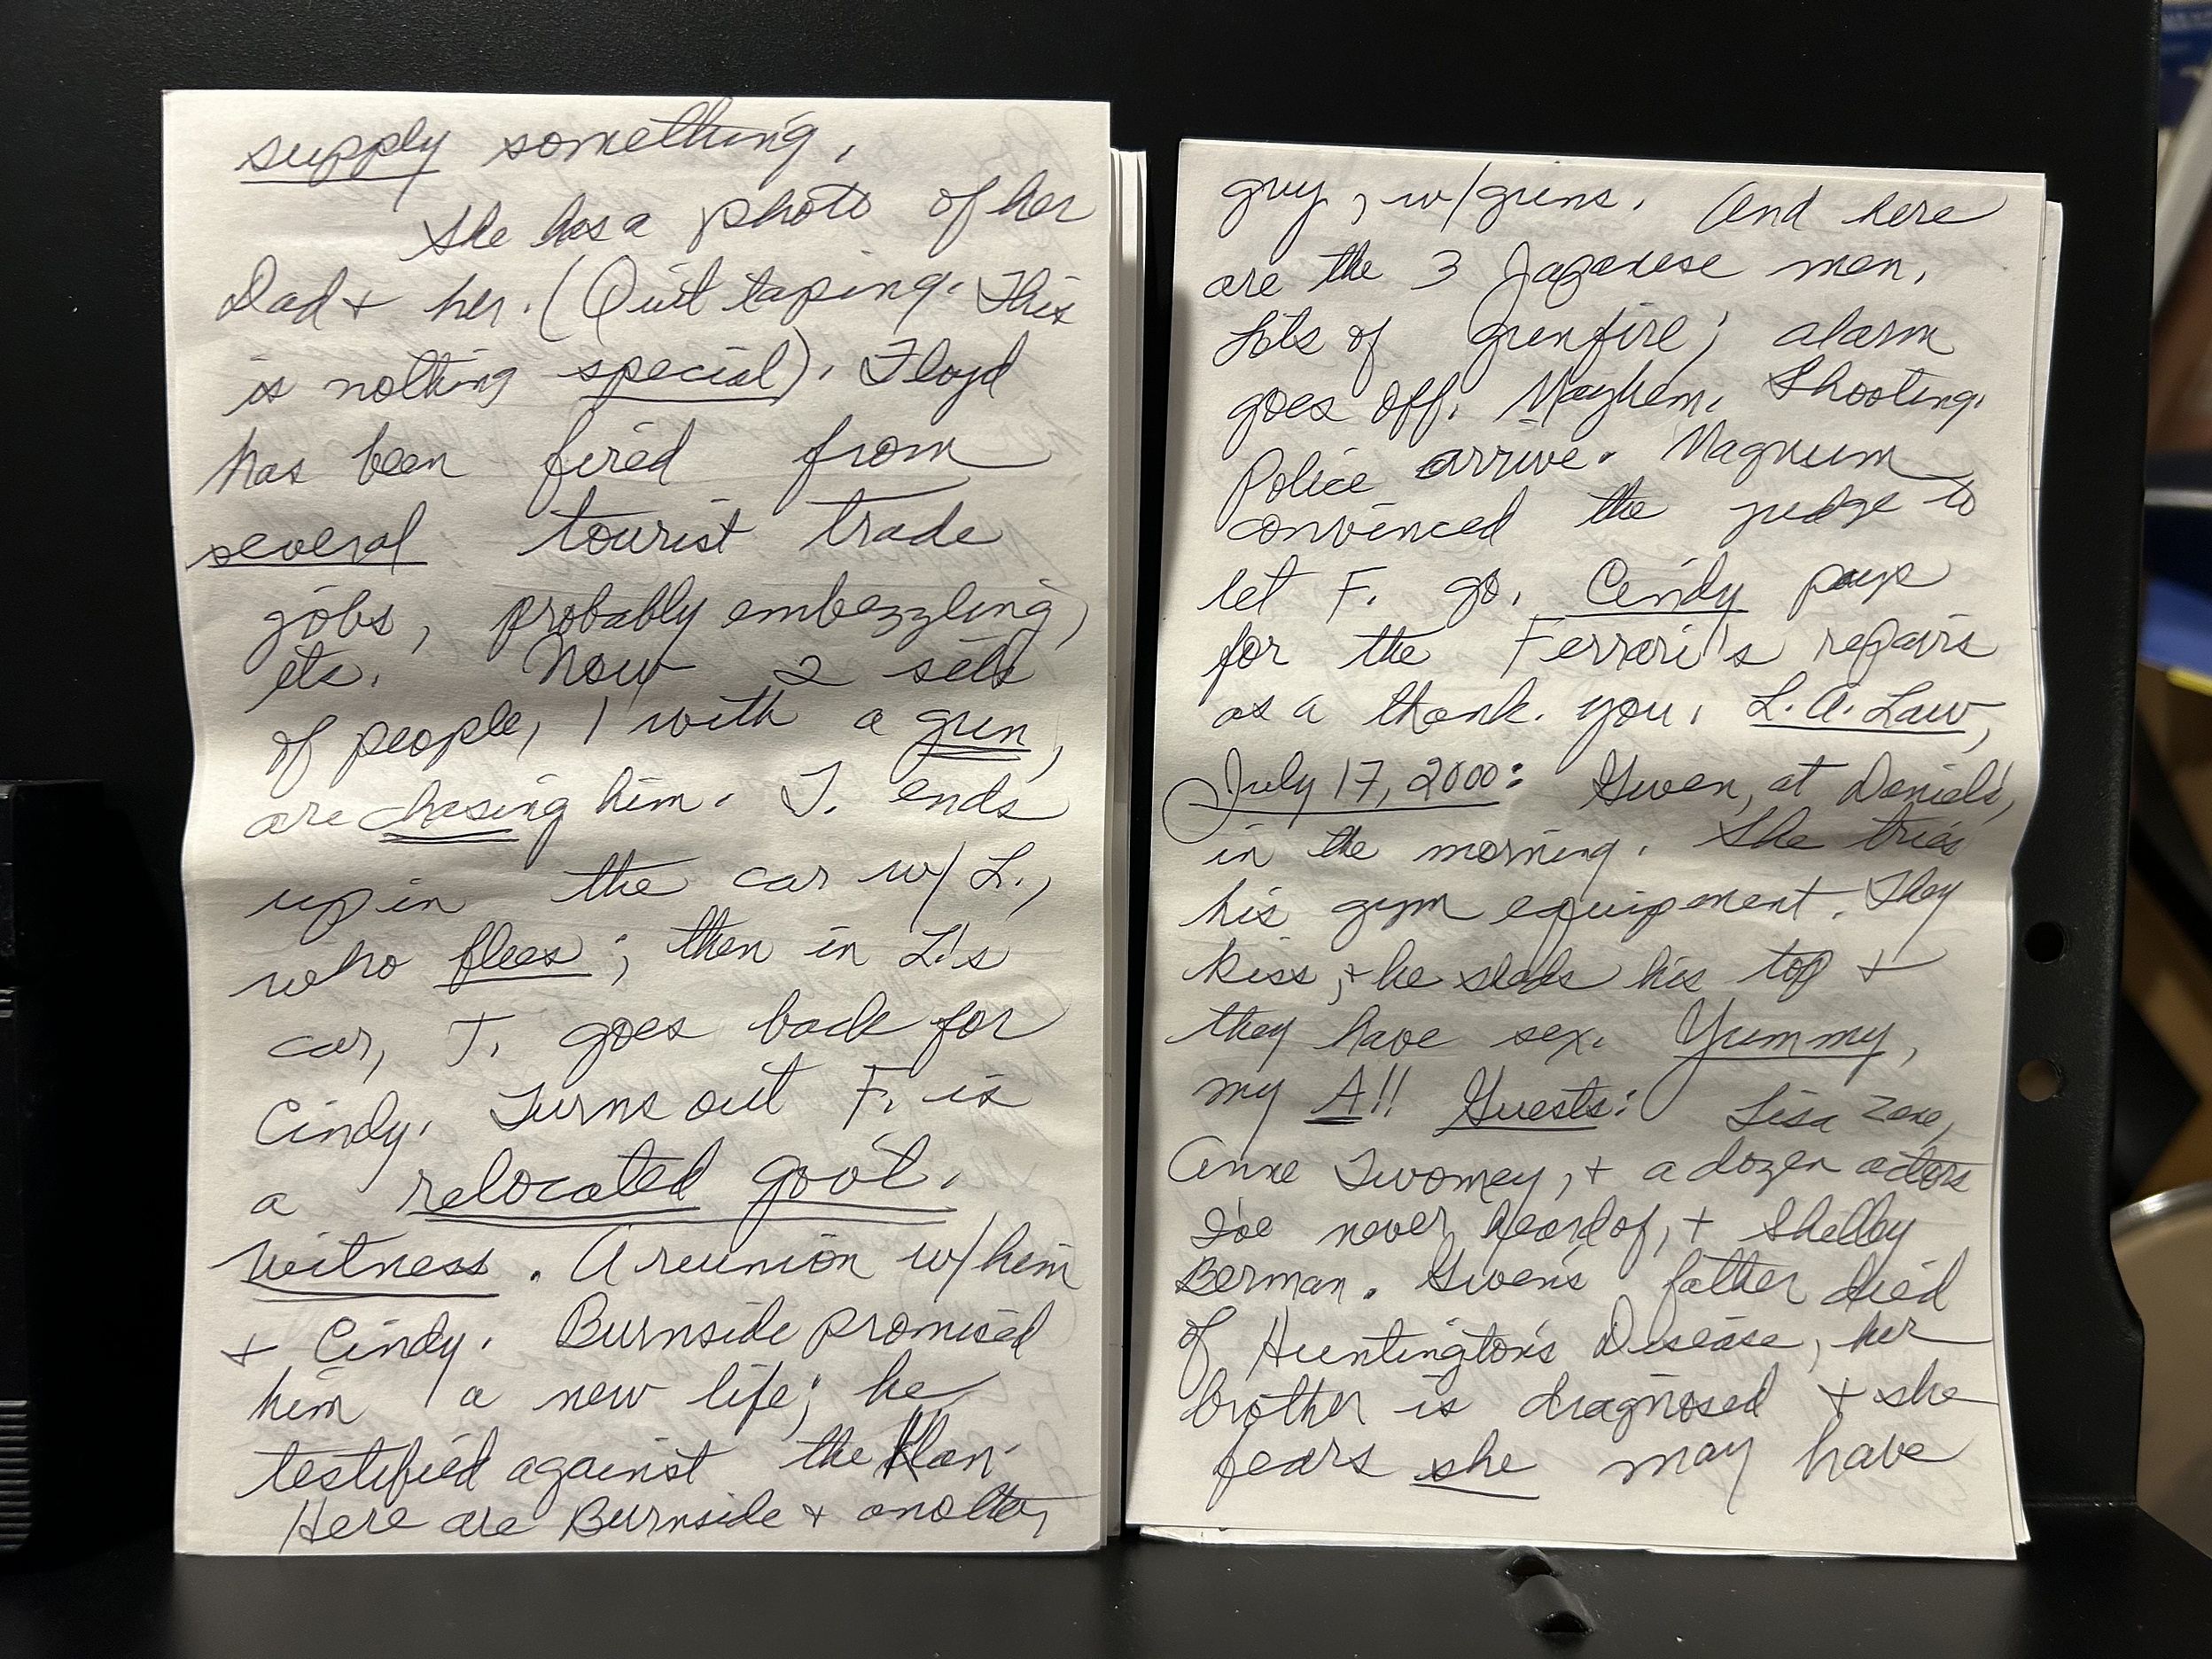 supply something.
She has a photo of her
Dad + her. (Quit taping. This
is nothing special). Floyd
has been fired from
several tourist trade
jobs, probably embezzling,
etc. Now 2 sets
of people, 1 with a gun,
are chasing him. T. ends
up in the car w/ L.,
who flees; then in L.'s
car, T. goes back for
Cindy. Turns out F. is
a relocated gov't.
witness. A reunion w/ him
+ Cindy. Burnside promised
him a new life; he
testified against the Klan.
Here are Burnside + another
guy, w/guns. And here
are the 3 Japanese men.
Lots of gunfire; alarm
goes off. Mayhem. Shooting.
Police arrive. Magnum
convinced the judge to
let F. go. Cindy pays
for the Ferrari's repairs
as a thank. you. L.A. Law,
July 17, 2000: Gwen, at Daniel's,
in the morning. She tries
his gym equipment. They
kiss, + he sheds his top +
they have sex. Yummy,
my A!! Guests: Lisa Zane,
Anne Twomey, + a dozen actors
I've never heard of, + Shelley
Berman. Gwen's father died
of Huntington's Disease, her
brother is diagnosed + she
fears she may have